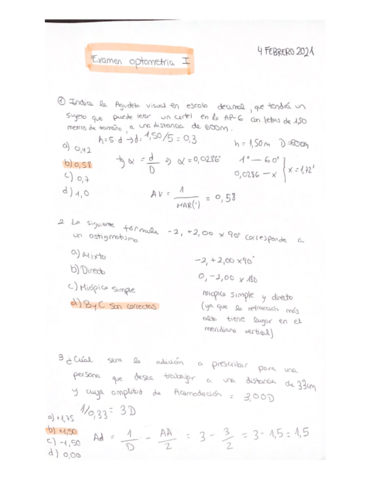 4 FEBRERO 2021
Examen optometría I
① Indica la Agudeza visual en escala decimal, que tendrá un
sujeto que puede leer un cartel en la AP-6 con letras de 1,50
metros de tamaño, a una distancia de 600m.
h=5d → d=1,50/5=0,3
h=1,50m D=600m
a) 0,42
b) 0,58
c) 0,7
d) 1,0
tg α = d/D ⇒ α=0,0286°
1° — 60'
0,0286 — x
x=1,72'
AV = 1/MAR(') = 0,58
2. La siguiente fórmula -2, +2,00 x 90° corresponde a
un astigmatismo
a) Mixto
b) Directo
c) Miópico simple
d) B y C son correctas
-2, +2,00 x 90°
0, -2,00 x 180
miópico simple y directo
(ya que la refracción más
alta tiene lugar en el
meridiano vertical)
3 ¿Cuál sera la adición a prescribir para una
persona que desea trabajar a una distancia de 33cm
y cuya amplitud de Acomodación = 3,00D
1/0,33 = 3D
a) +1,75
b) +1,50
c) -1,50
d) 0,00
Ad = 1/D - AA/2 = 3 - 3/2 = 3-1,5=1,5